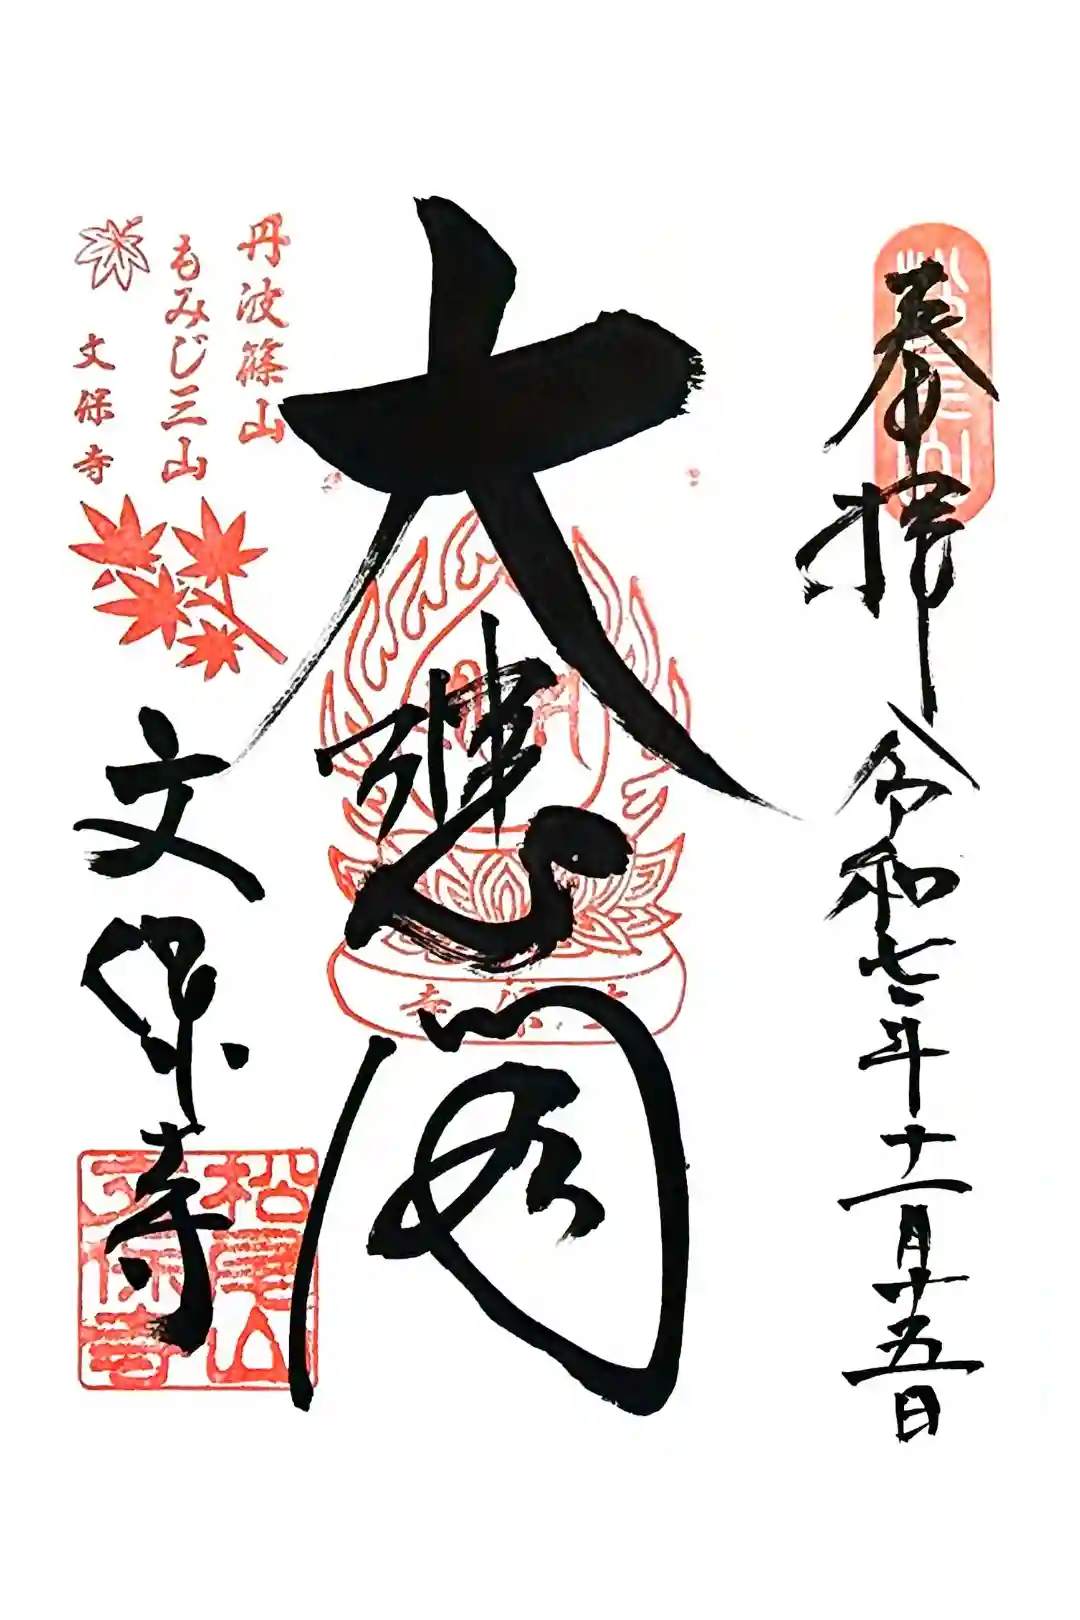 奉拝
令和七年十一月十五日
大悲閣
丹波篠山
もみじ三山
文保寺
文保寺
文保寺
松尾山
文保寺